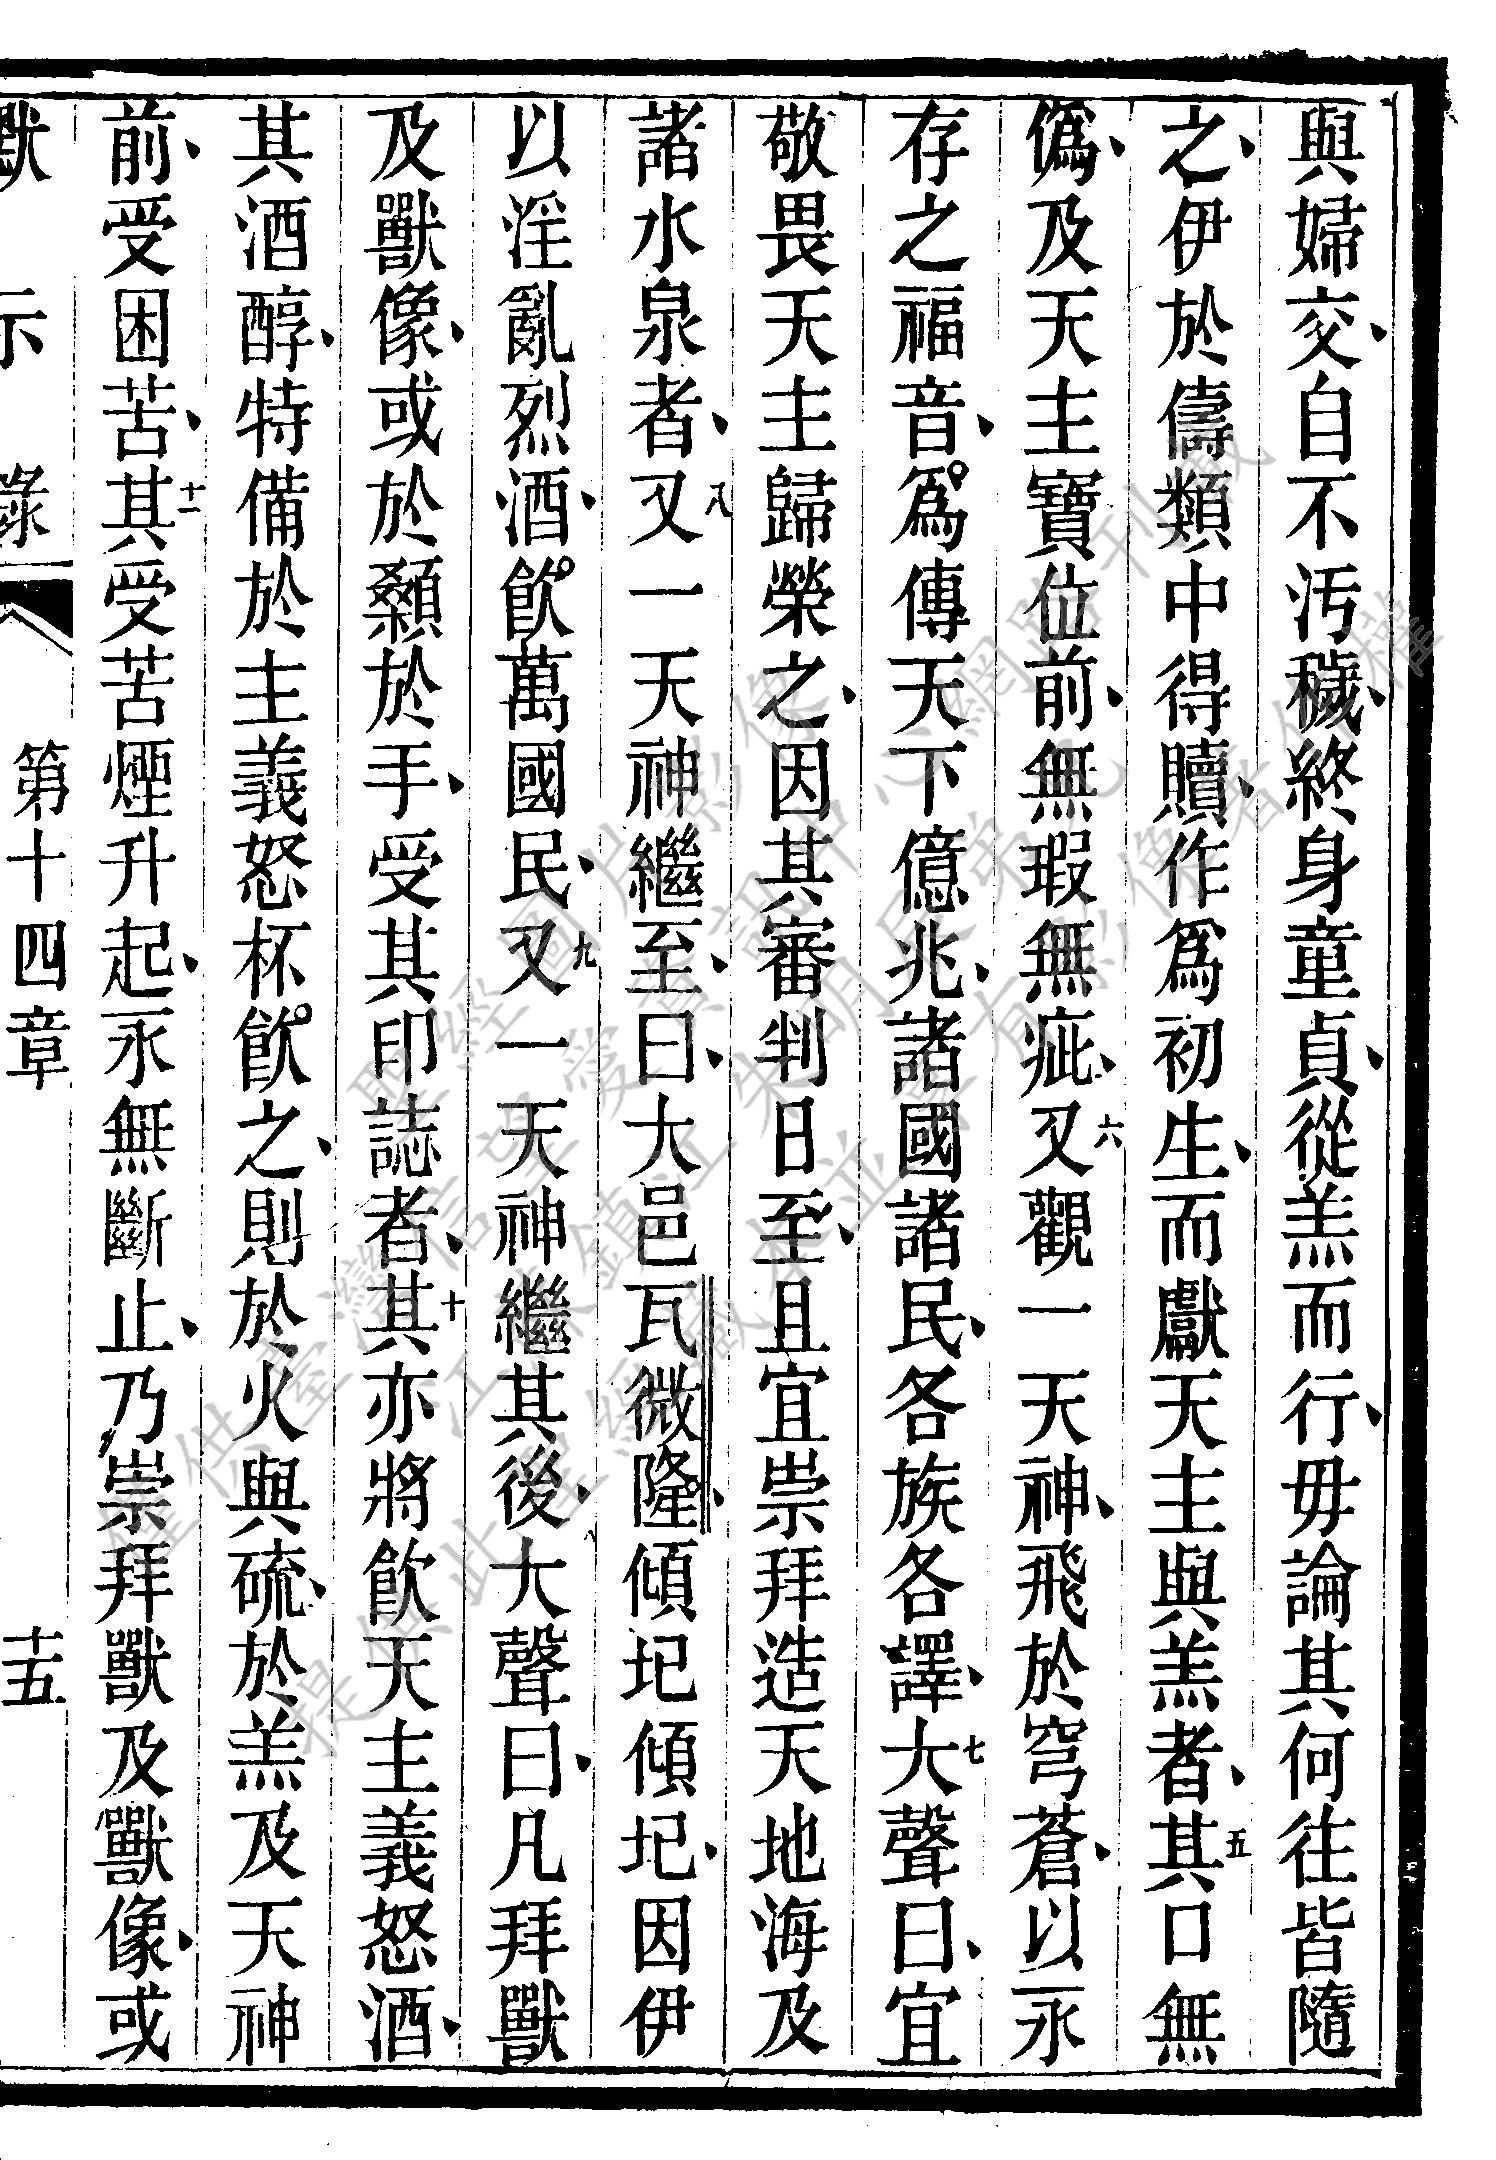 與婦交、自不污穢、終身童貞、從羔而行、毋論其何往皆隨
之、伊於儔類中得贖、作爲初生、而獻天主與羔者、五其口無
僞、及天主寶位前、無瑕無疵、六又觀一天神、飛於穹蒼、以永
存之福音、爲傳天下億兆、諸國諸民、各族各譯、七大聲曰、宜
敬畏天主歸榮之、因其審判日至、且宜崇拜造天地海及
諸水泉者、八又一天神繼至、曰、大邑瓦微隆、傾圮傾圮、因伊
以淫亂烈酒、飮萬國民、九又一天神繼其後、大聲曰、凡拜獸
及獸像、或於顙於手、受其印誌者、十其亦將飮天主義怒酒、
其酒醇、特備於主義怒杯飮之、則於火與硫、於羔及天神
前、受困苦、十一其受苦煙升起、永無斷止、乃崇拜獸及獸像、或
默示錄 第十四章 十五